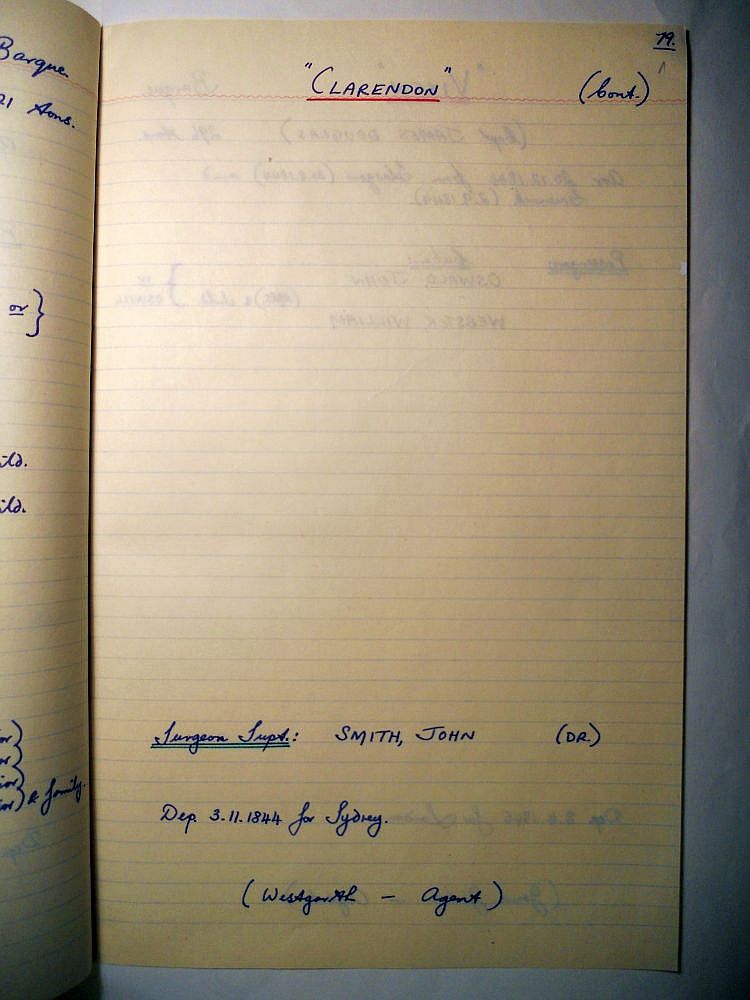 Barque
21 Tons.
or }
ild.
ild.
or)
or)
ior)
ior) & family.
79.
"CLARENDON" (Cont.)
Surgeon Supt.: SMITH, JOHN (DR.)
Dep. 3.11.1844 for Sydney.
(Westgarth - Agent)